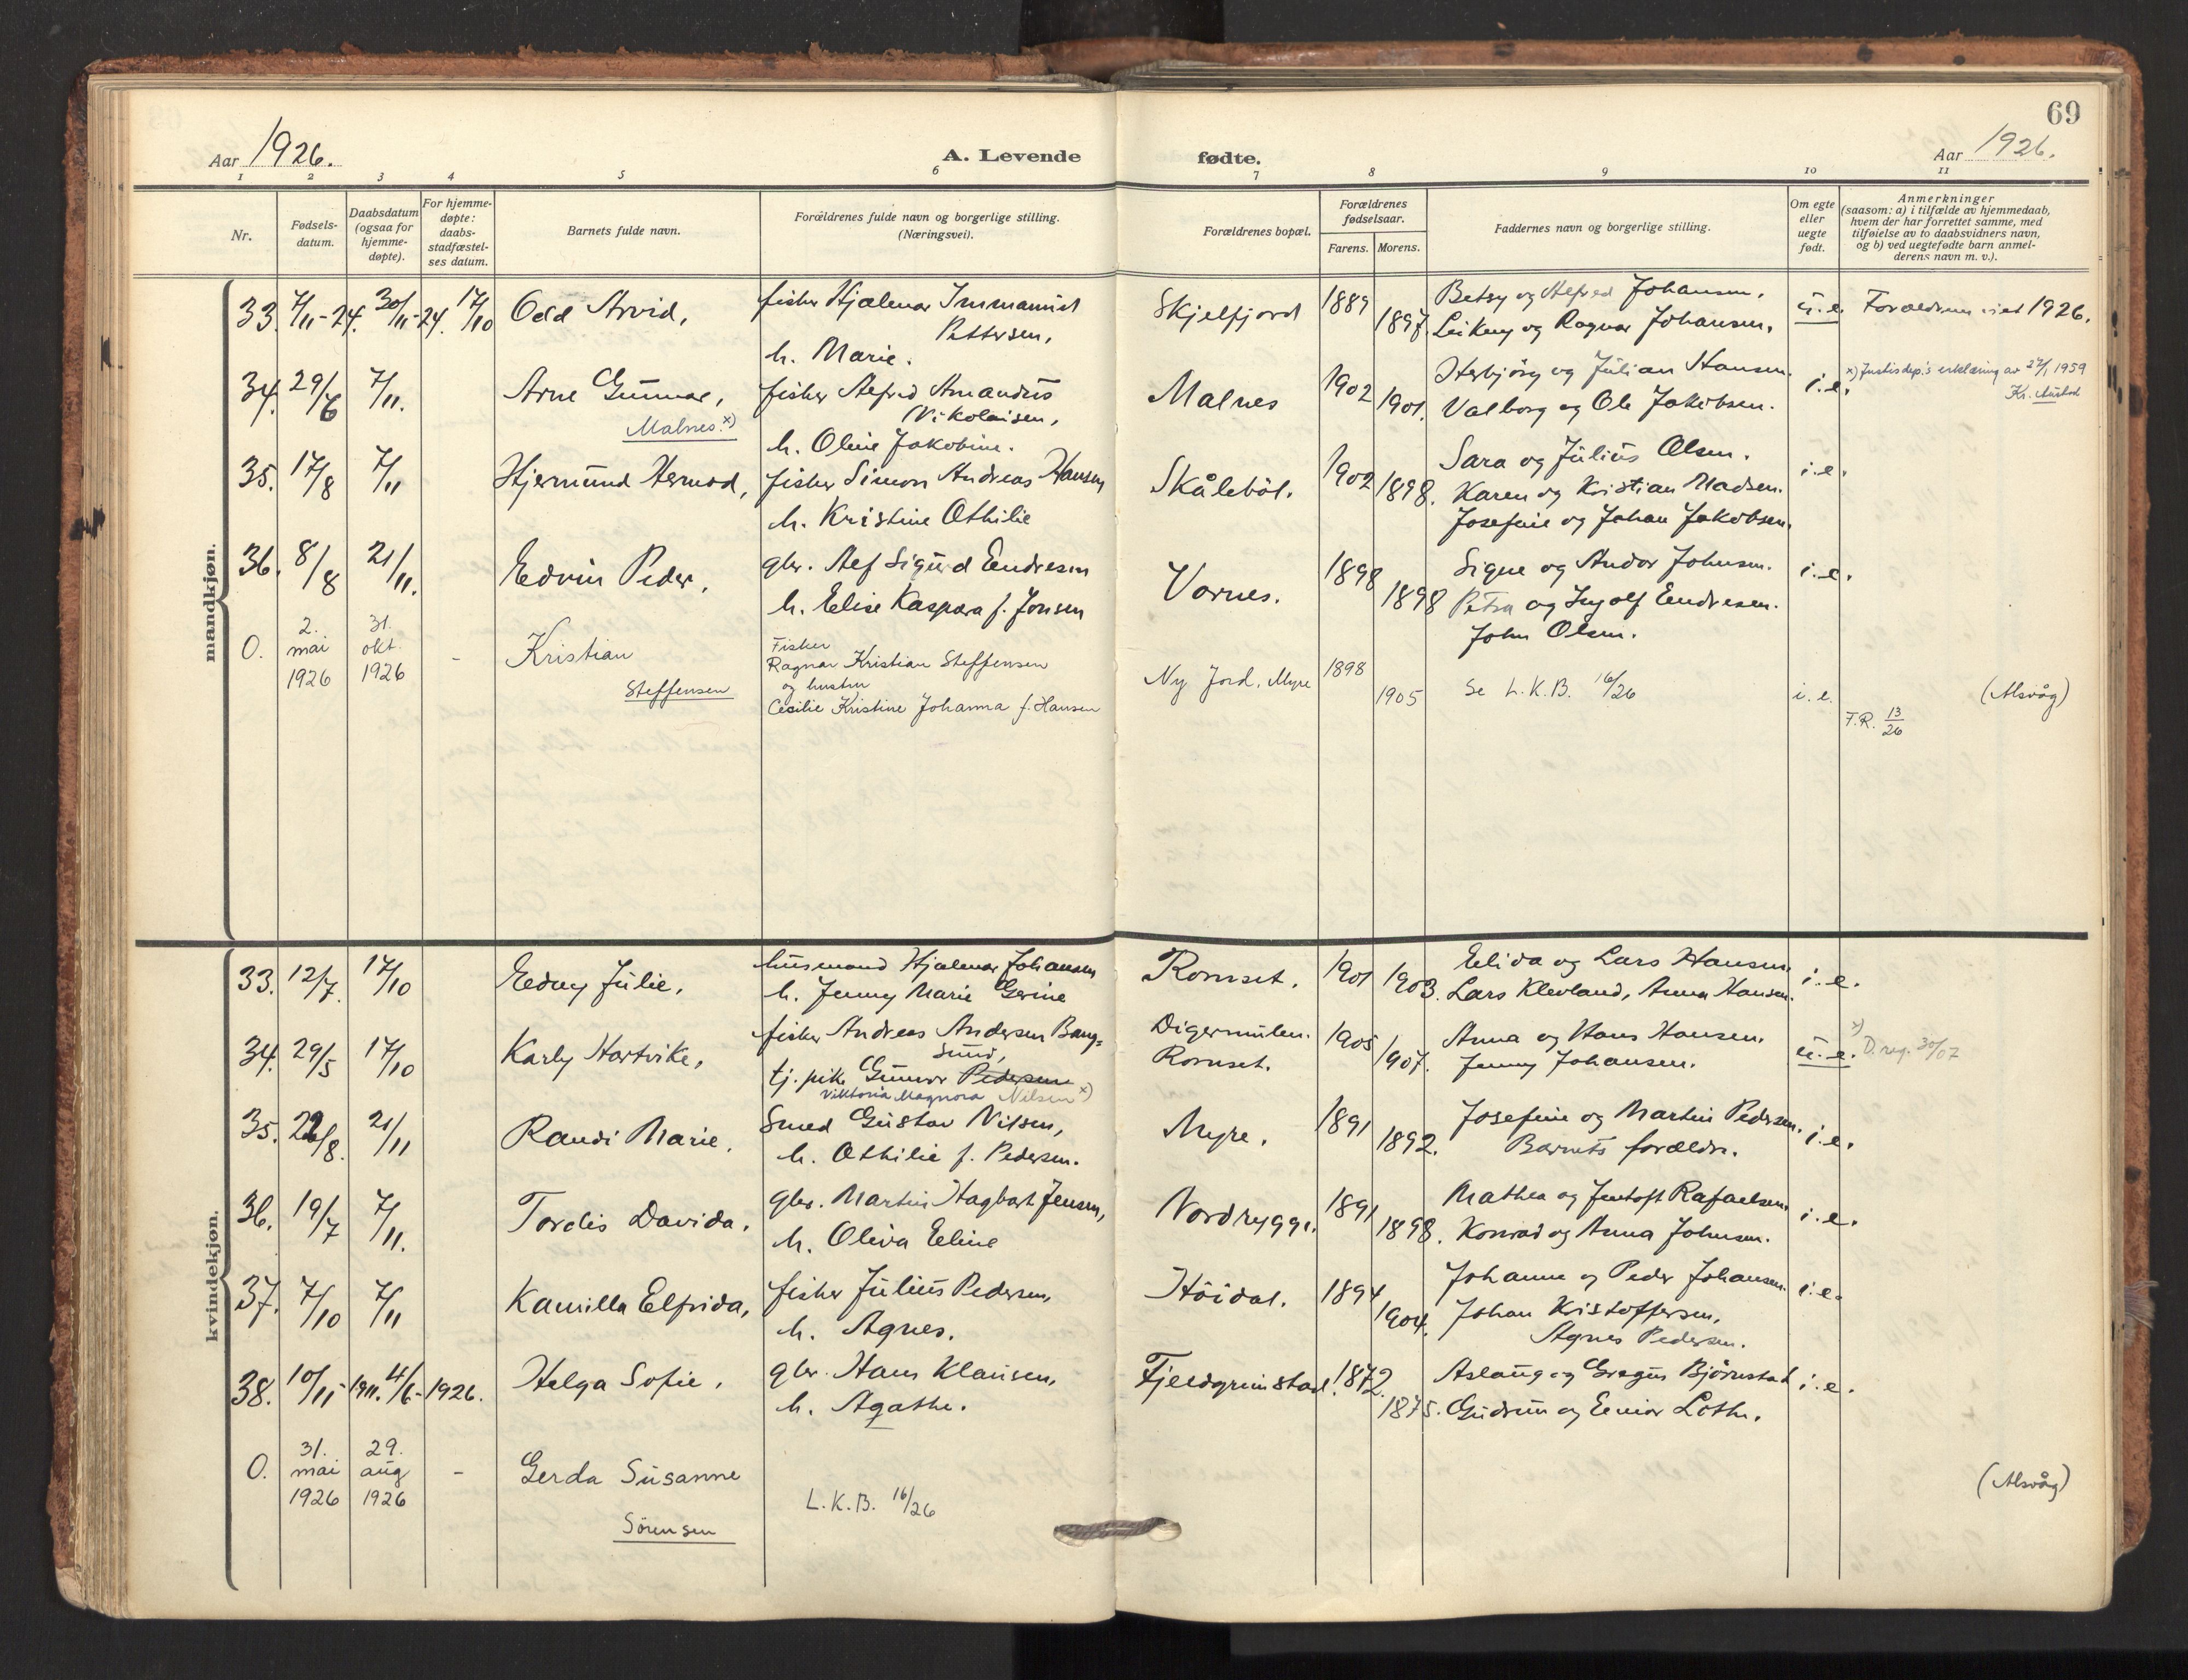 69
Aar 1926.
A. Levende fødte.
Aar 1926.
1 2 3 4 5 6 7 8 9 10 11
Nr.
Fødsels-
datum.
Daabsdatum
(ogsaa for
hjemme-
døpte).
For hjemme-
døpte:
daabs-
stadfæstel-
ses datum.
Barnets fulde navn.
Forældrenes fulde navn og borgerlige stilling.
(Næringsvei).
Forældrenes bopæl.
Forældrenes
fødselsaar.
Farens. Morens.
Faddernes navn og borgerlige stilling.
Om egte
eller
uegte
født.
Anmerkninger
(saasom: a) i tilfælde av hjemmedaab,
hvem der har forrettet samme, med
tilføielse av to daabsvidners navn,
og b) ved uegtefødte barn anmel-
derens navn m. v.).
mandkjøn.
33. 7/11-24. 30/11-24 17/10 Odd Arvid,
fisker Hjalmar Immanuel
Pettersen,
h. Marie.
Skjelfjord 1889 1897.
Betsy og Alfred Johansen,
Leikny og Ragnar Johansen.
u.e. Forældrene viet 1926.
34. 29/6 7/11. Arne Gunnar,
Malnes x)
fisker Alfred Amandus
Nikolaisen,
h. Oline Jakobine.
Malnes 1902 1901.
Herbjörg og Julian Hansen.
Valborg og Ole Jakobsen.
i.e.
x) Justisdep.s erklæring av 27/1 1959
Kr. Austad
35. 17/8 7/11 Hjermund Hermod,
fisker Simon Andreas Hansen
h. Kristine Othilie
Skåleböl. 1902 1898.
Sara og Julius Olsen.
Karen og Kristian Madsen.
Josefine og Johan Jakobsen.
i.e.
36. 8/8 21/11. Edvin Peder,
gbr. Alf Sigurd Endresen
h. Elise Kaspara f. Jonsen
Vornes. 1898 1898
Signe og Andor Johnsen.
Petra og Ingolf Endresen.
John Olsen.
i.e.
0. 2. mai 1926 31. okt. 1926 - Kristian
Steffensen
Fisker
Ragnar Kristian Steffensen
og hustru
Cecilie Kristine Johanna f. Hansen
Ny Jord, Myre 1898 1905
Se L.K.B. 16/26
i.e. (Alsvåg)
F.R. 13/26
kvindekjøn.
33. 12/7. 17/10 Edny Julie,
husmand Hjalmar Johansen
h. Jenny Marie Gerine
Romset. 1901 1903.
Elida og Lars Hansen.
Lars Klevland, Anna Hansen.
i.e.
34. 29/5 17/10 Karly Hartvike,
fisker Andreas Andersen Bang=
sund,
tj. pike Gunvor Pedersen
Viktoria Magnora Nilsen x)
Digermulen.
Romset. 1905 1907.
Anna og Hans Hansen.
Jenny Johansen.
u.e. x) D. reg. 30/07
35. 22/8. 21/11 Randi Marie.
Smed Gustav Nilsen,
h. Othilie f. Pedersen.
Myre. 1891 1892.
Josefine og Martin Pedersen.
Barnets forældre.
i.e.
36. 19/7 7/11. Tordis Davida.
gbr. Martin Hagbart Jensen,
h. Oliva Eline
Nordrygge. 1891 1898.
Mathea og Jentoft Rafaelsen.
Konrad og Anna Johnsen.
i.e.
37. 7/10 7/11 Kamilla Elfrida,
fisker Julius Pedersen,
h. Agnes.
Höidal. 1894 1904.
Johanne og Peder Johansen.
Johan Kristoffersen,
Agnes Pedersen.
i.e.
38. 10/11-1911. 4/6-1926. Helga Sofie,
gbr. Hans Klausen,
h. Agathe.
Fjeldgrimstad. 1872. 1875.
Aslaug og Gregus Björnstad
Gudrun og Einar Loth.
i.e.
0. 31. mai 1926 29. aug 1926 - Gerda Susanne
Sörensen
L.K.B. 16/26
(Alsvåg)